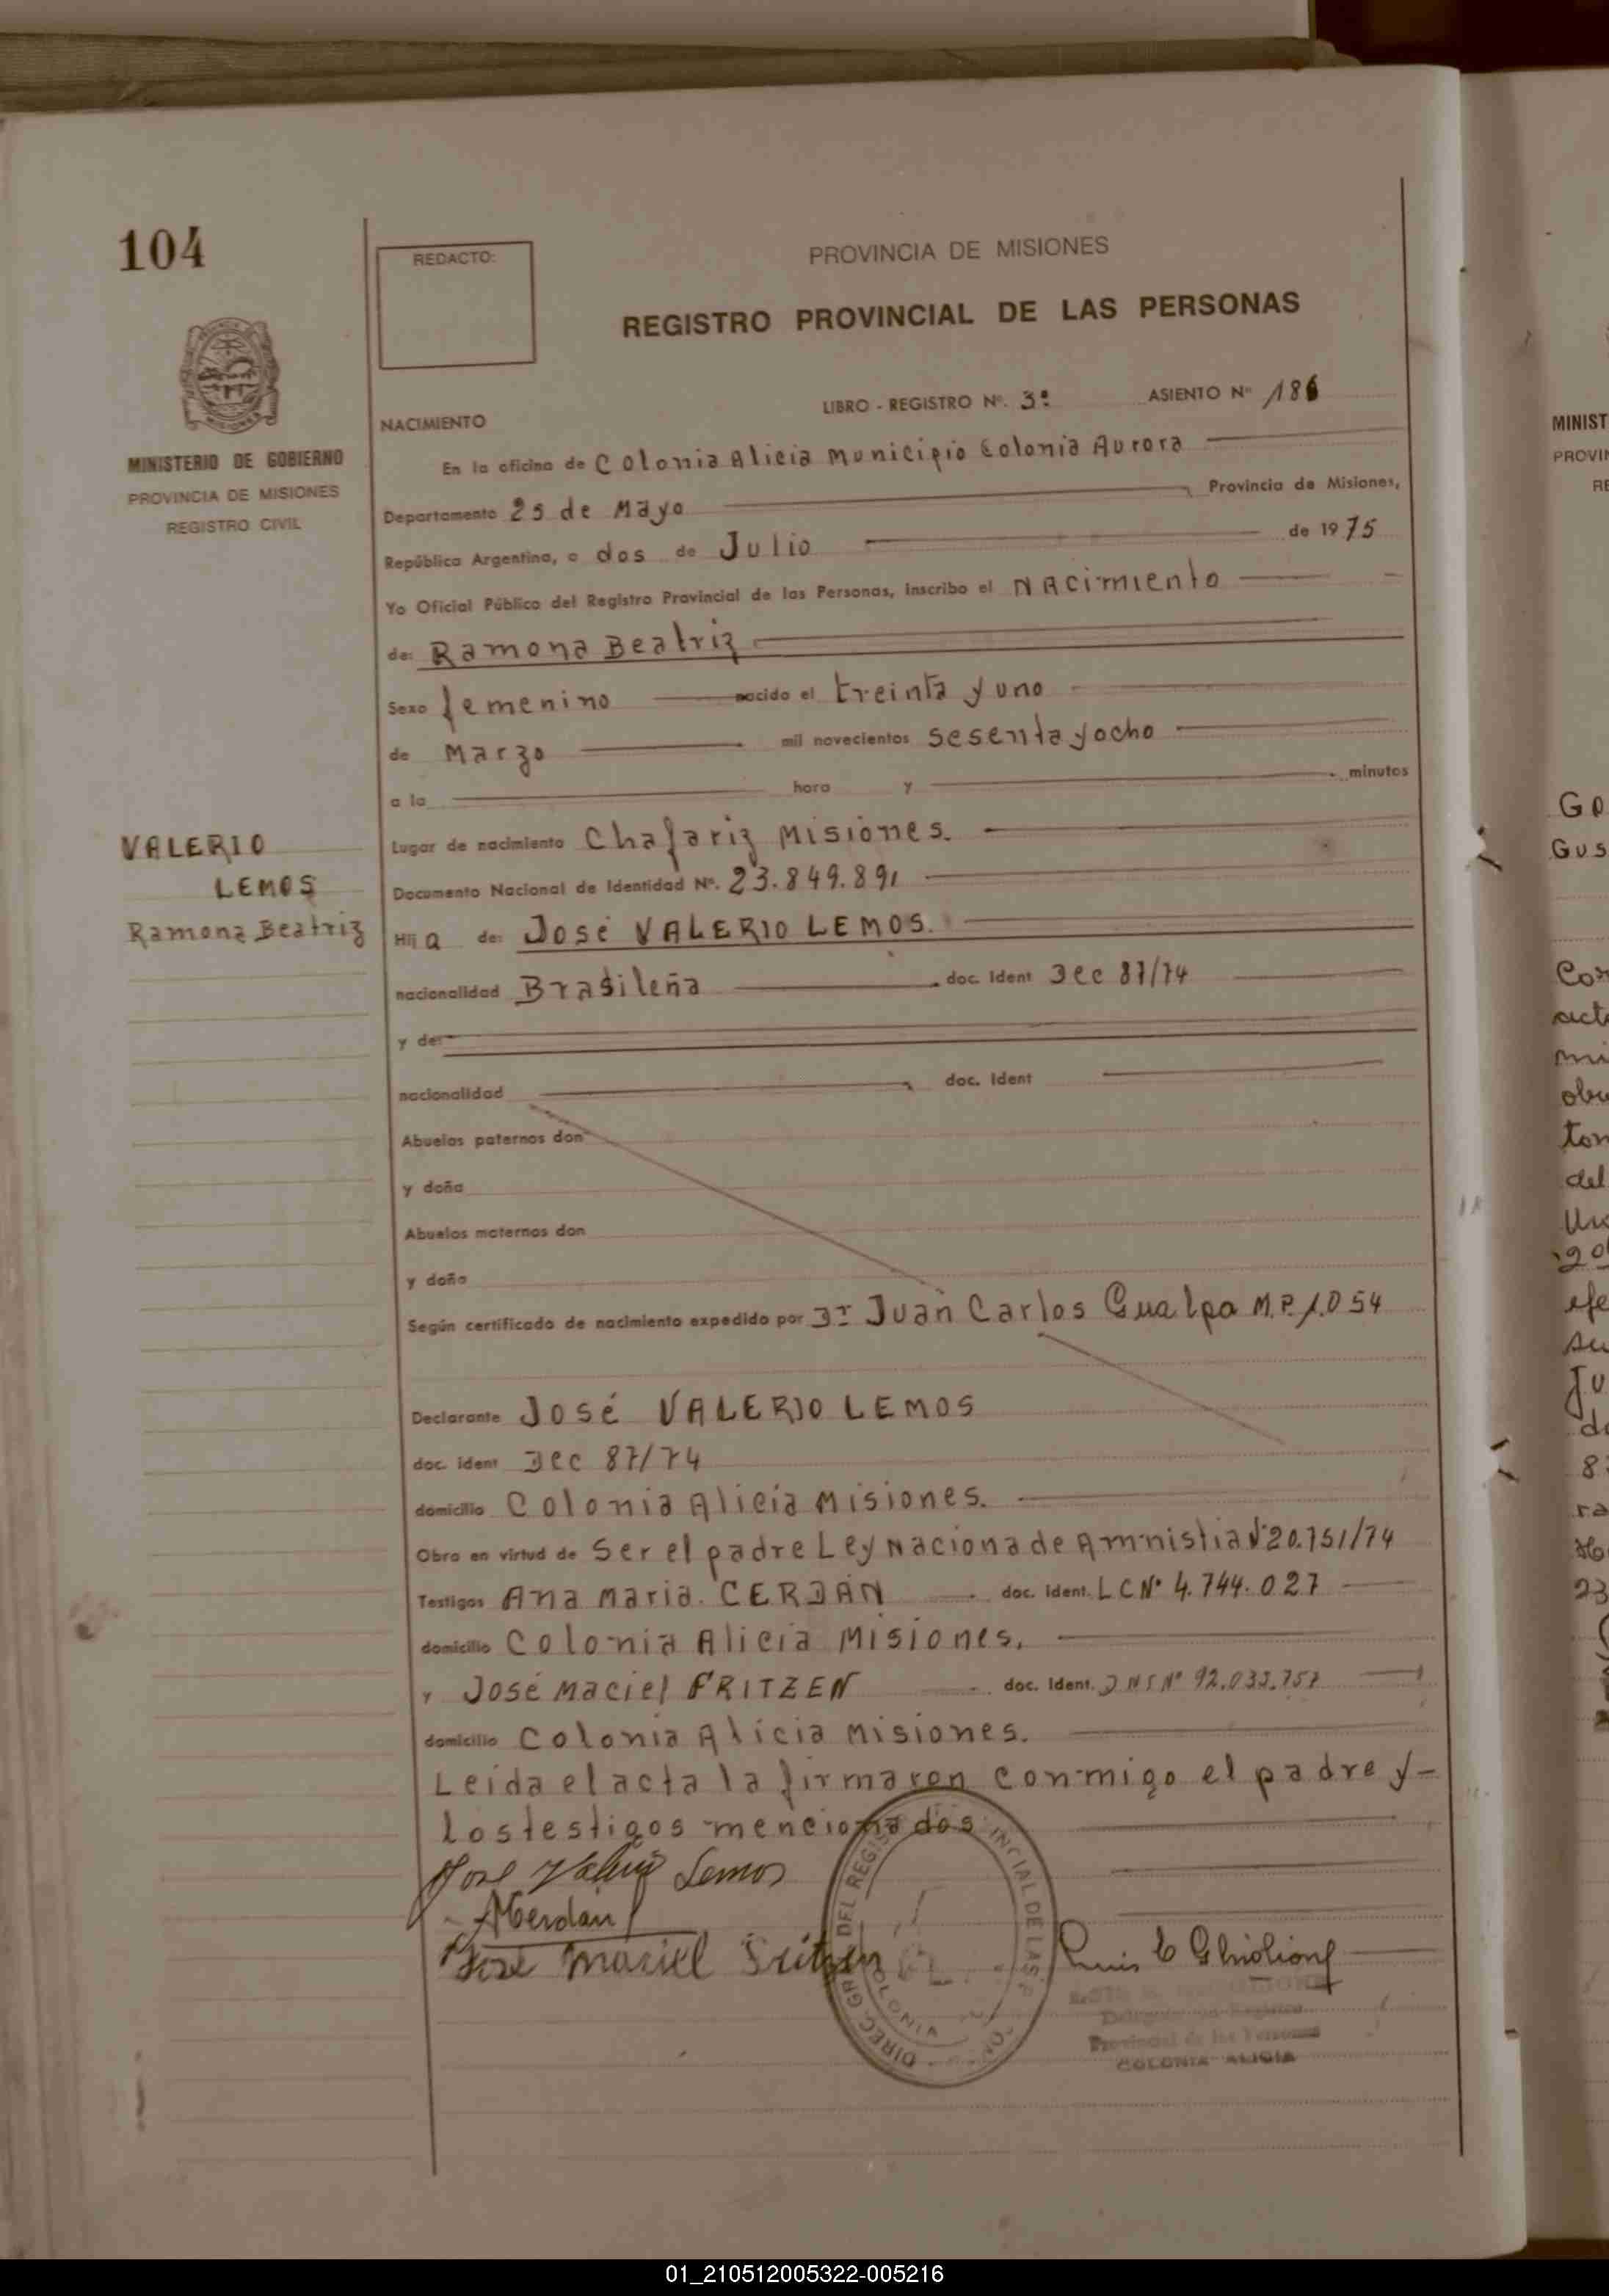 104
REDACTO:
PROVINCIA DE MISIONES
REGISTRO PROVINCIAL DE LAS PERSONAS
MINISTERIO DE GOBIERNO
PROVINCIA DE MISIONES
REGISTRO CIVIL
LIBRO - REGISTRO Nº. 3º ASIENTO Nº 186
NACIMIENTO
En la oficina de Colonia Alicia Municipio Colonia Aurora
Departamento 25 de Mayo, Provincia de Misiones,
República Argentina, a dos de Julio de 1975
Yo Oficial Público del Registro Provincial de las Personas, inscribo el Nacimiento
de: Ramona Beatriz
Sexo femenino nacido el treinta y uno
de Marzo mil novecientos sesenta y ocho
a la hora y minutos
Lugar de nacimiento Chafariz Misiones.
Documento Nacional de Identidad Nº. 23.849.891
VALERIO
LEMOS
Ramona Beatriz
Hija de: José VALERIO LEMOS.
nacionalidad Brasileña doc. Ident Dec 87/74
y de:
nacionalidad doc. Ident
Abuelos paternos don
y doña
Abuelos maternos don
y doña
Según certificado de nacimiento expedido por Dr Juan Carlos Gualpa M.P. 1.054
Declarante José VALERIO LEMOS
doc. ident Dec 87/74
domicilio Colonia Alicia Misiones.
Obra en virtud de Ser el padre Ley Naciona de Amnistia Nº 20.751/74
Testigos Ana Maria. CERDÁN doc. Ident. LC Nº 4.744.027
domicilio Colonia Alicia Misiones.
y José Maciel FRITZEN doc. Ident. DNI Nº 92.033.757
domicilio Colonia Alicia Misiones.
Leida el acta la firmaron conmigo el padre y-
los testigos mencionados
José Valerio Lemos
ACerdan
José Maciel Fritzen
Luis C Ghiolione
Delegado del Registro
Provincial de las Personas
COLONIA ALICIA
01_210512005322-005216